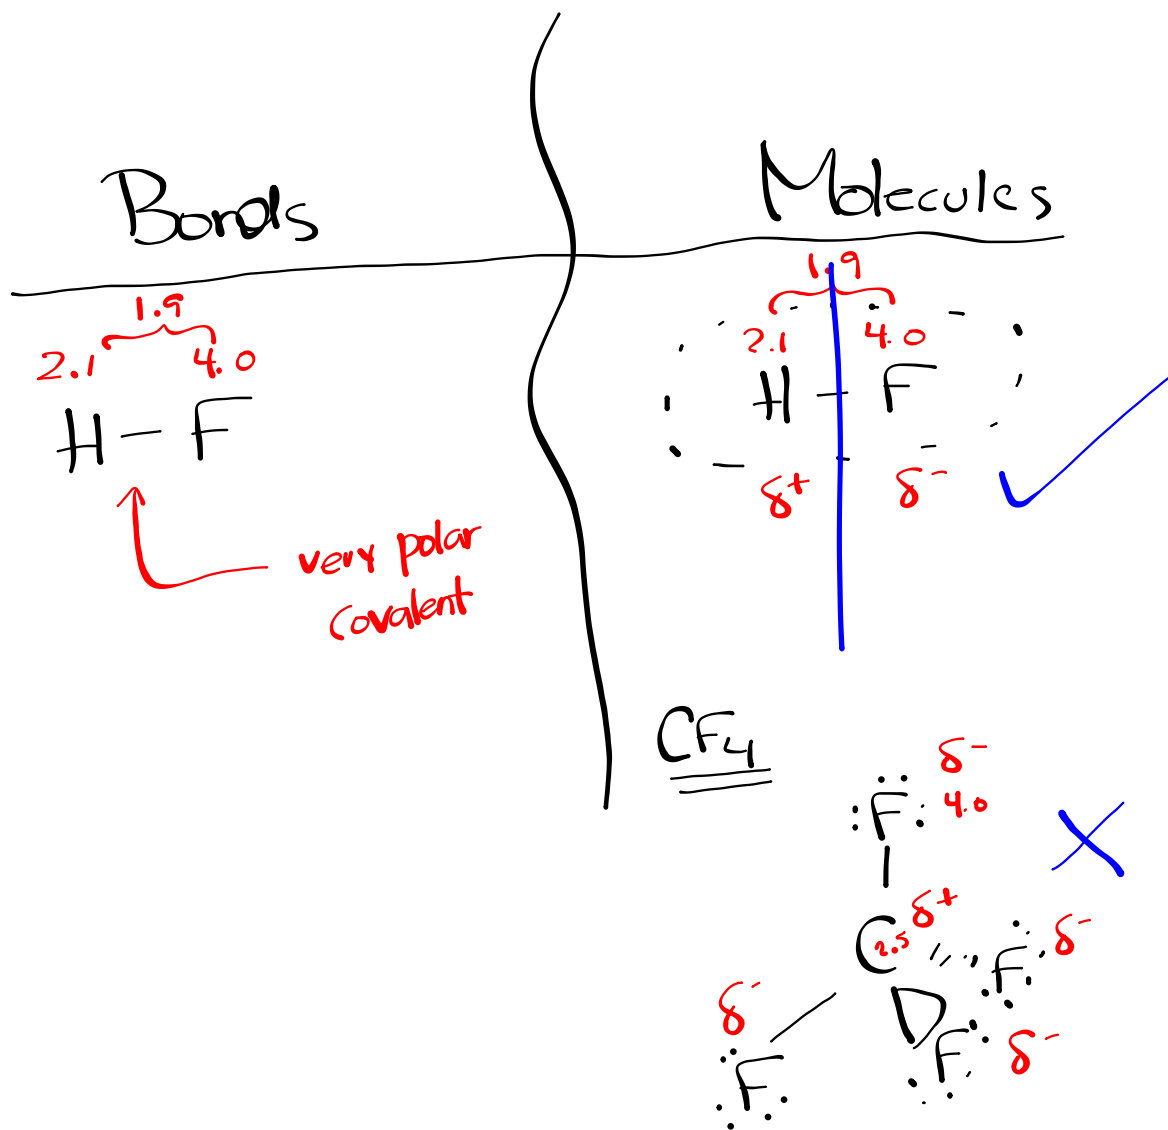 Bonds
1.9
2.1 4.0
H – F
very polar
covalent
Molecules
1.9
2.1 4.0
H – F
δ+ δ-
CF4
δ-
F 4.0
δ+
C 2.5
F δ-
δ-
F
F δ-